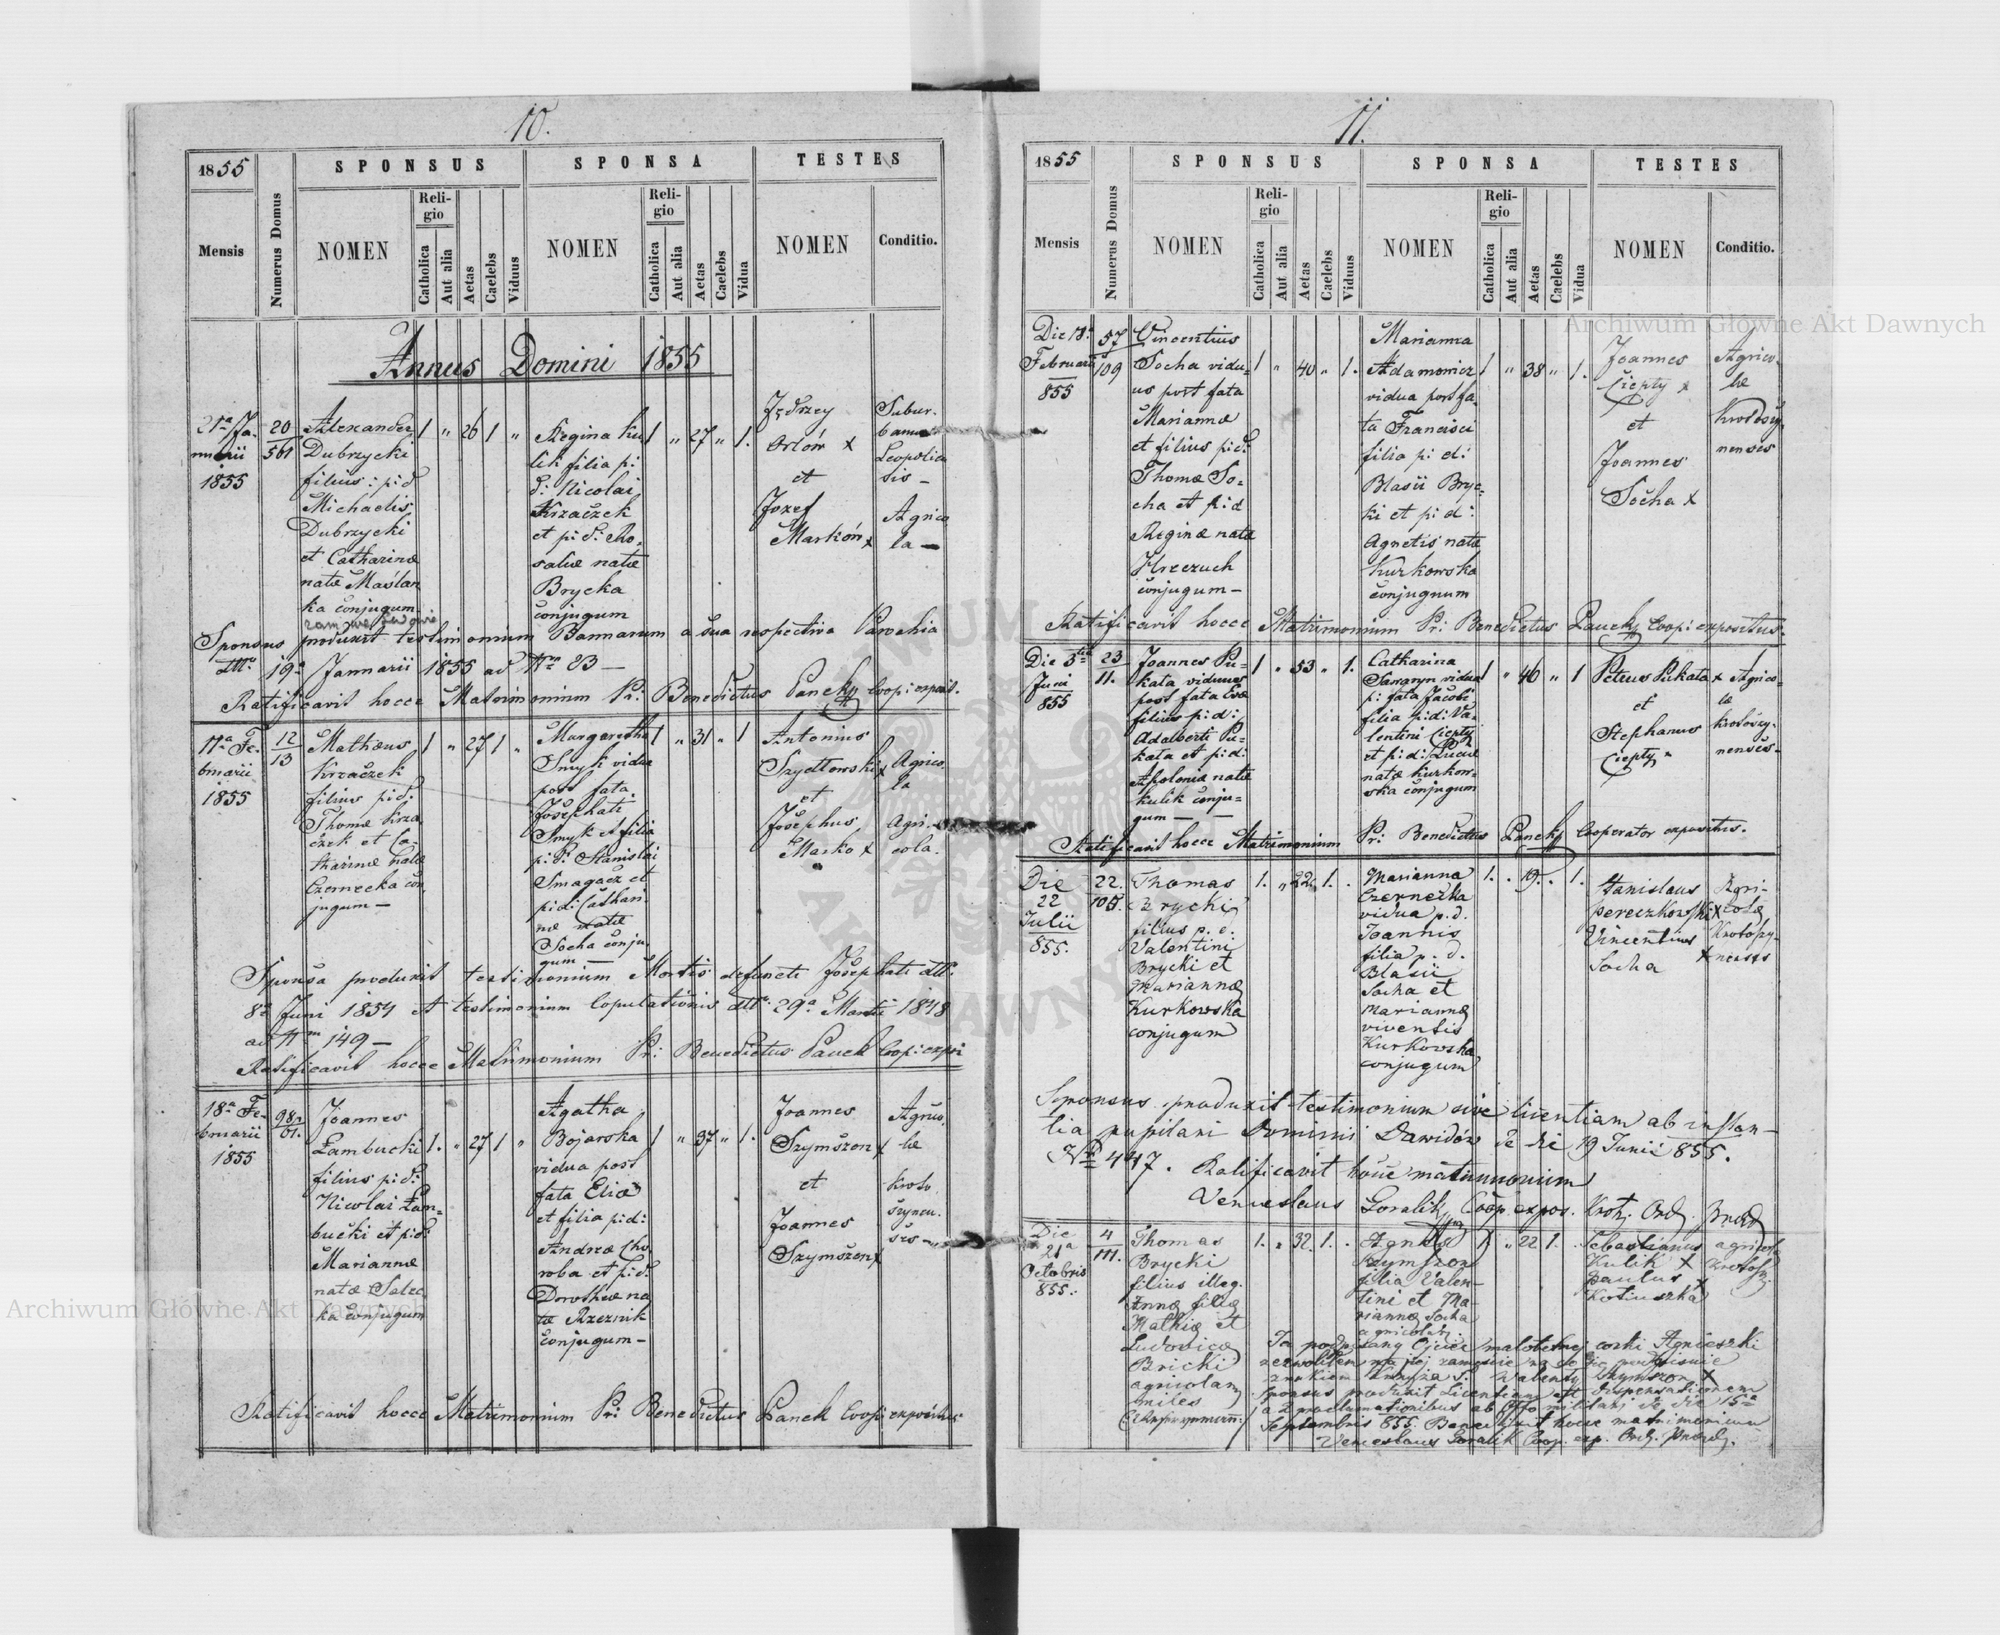 10.
1855
SPONSUS
SPONSA
TESTES
Mensis
Numerus Domus
NOMEN
Religio
Catholica
Aut alia
Aetas
Caelebs
Viduus
NOMEN
Religio
Catholica
Aut alia
Aetas
Caelebs
Vidua
NOMEN
Conditio.
Annus Domini 1855
21a Ja-
nuarii
1855
20
561
Alexander
Dubrzycki
filius: p: d
Michaelis
Dubrzycki
et Catharinæ
natæ Maślan
ka conjugum
1 " 26 1 "
Regina Ku
lik filia p:
d: Nicolai
Krzaczek
et p: d: Ro-
saliæ natæ
Brycka
conjugum
1 " 27 " 1.
Jędrzey
Orłów x
et
Jozef
Marków x
Subur-
banus
Leopolien
sis –
Agrico
la –
Sponsus produxit testimonium Bannorum a sua respectiva Parochia
ddto 19a Januarii 1855 ad Nrm 23 –
Ratificavit hocce Matrimonium Pr: Benedictus Panek Coop: exposit.
11a Fe-
bruarii
1855
12
13
Mathæus
Krzaczek
filius p: d:
Thomæ Krza
czek et Ca-
tharinæ natæ
Czernecka con
jugum –
1 " 27 1 "
Margaretha
Smyk vidua
post fata
Josephati
Smyk et filia
p: d: Stanislai
Smagacz et
p: d: Cathari
næ natæ
Socha conju-
gum –
1 " 31 " 1
Antonius
Szydłowski x
et
Josephus
Marko x
Agrico
la
Agri-
cola.
Sponsa produxit testimonium Mortis defuncti Josephati ddto
8a Juni 1854 et testimonium Copulationis ddto 29a Martii 1848
ad Nrm 149 –
Ratificavit hocce Matrimonium Pr: Benedictus Panek Coop: expos
18a Fe-
bruarii
1855
98
61.
Joannes
Łambucki
filius p: d:
Nicolai Łam-
bucki et p: d:
Mariannæ
natæ Salec
ka conjugum
1. " 27 1 "
Agatha
Bojarska
vidua post
fata Eliæ
et filia p: d:
Andreæ Cho
roba et p: d:
Dorotheæ na
tæ Rzeznik
conjugum –
1 " 37 " 1.
Joannes
Szymszon x
et
Joannes
Szymszon x
Agrico-
læ
Kroto
szynen-
ses –
Ratificavit hocce Matrimonium Pr: Benedictus Panek Coop: expositus
11.
1855
SPONSUS
SPONSA
TESTES
Mensis
Numerus Domus
NOMEN
Religio
Catholica
Aut alia
Aetas
Caelebs
Viduus
NOMEN
Religio
Catholica
Aut alia
Aetas
Caelebs
Vidua
NOMEN
Conditio.
Februarii
855
57
109
Vincentius
Socha vidu-
us post fata
Mariannæ
et filius p: d:
Thomæ So-
cha et p: d
Reginæ natæ
Hreczuch
conjugum –
1 " 40 " 1.
Marianna
Adamowicz
vidua post fa-
ta Francisci
filia p: d:
Blasii Bryc-
ki et p: d:
Agnetis natæ
Kurkowska
conjugum
1 " 38 " 1.
Joannes
Ciepły x
et
Joannes
Socha x
Agrico-
læ
Krotoszy-
nenses
Ratificavit hocce Matrimonium Pr: Benedictus Panek Coop: expositus.
Die 3tia
Juni
855
23
11.
Joannes Pu-
kata viduus
post fata Evæ
filius p: d:
Adalberti Pu-
kata et p: d:
Apoloniæ natæ
Kulik conju-
gum –
1 " 53 " 1.
Catharina
vidua
p: fata Jacobi
filia p: d: Va-
lentini Ciepły
et p: d: Luciæ
natæ Kurkow-
ska conjugum
1 " 46 " 1
Petrus Pukata x
et
Stephanus
Ciepły "
Agrico-
læ
Krotoszy-
nenses –
Ratificavit hocce Matrimonium Pr: Benedictus Panek Cooperator expositus.
Die
22
Julii
855.
22.
105.
Thomas
Brycki
filius p. d.
Valentini
Brycki et
Mariannæ
Kurkowska
conjugum
1. " 22. 1. .
Marianna
Czernecka
vidua p. d.
Joannis
filia p. d.
Blasii
Socha et
Mariannæ
viventis
Kurkowska
conjugum
1. . 19. . 1.
Stanislaus
Pereczkowski x
Vincentius
Socha x
Agri-
colæ
Krotoszy-
nenses
Sponsus produxit testimonium sive licentiam ab instan-
tia pupilari Dominii Dawidów de die 19 Junii 855.
Nro 447. Ratificavit hocce matrimonium
Venceslaus Goralik Coop. expos. Krot. Ord. Præd.
Die
21a
Octobris
855.
4
111.
Thomas
Brycki
filius illeg.
Annæ filiæ
Mathiæ et
Ludovicæ
Bricki
agricolarum
miles
1. " 32. 1. .
Agnes
Szymszon
filia Valen-
tini et Ma-
riannæ Socha
agricolar.
1 " 22 1.
Sebastianus
Kulik x
Paulus x
Kotiuszka
agricolæ
Krotosz.
Ja podpisany Ojciec małoletney corki Agnieszki
zezwoliłem na jej zamęscie na co się podpisuie
znakiem Krzyża S. Walenty Szymszon x
Sponsus produxit Licentiam et Dispensationem
a 2 proclamationibus ab Offo militari de die 15a
Septembris 855. Benedixit hocce matrimonium
Venceslaus Goralik Coop. exp. Ord. Præd.
Archiwum Główne Akt Dawnych
Archiwum Główne Akt Dawnych
ARCHIWUM
AKT DAWNYCH